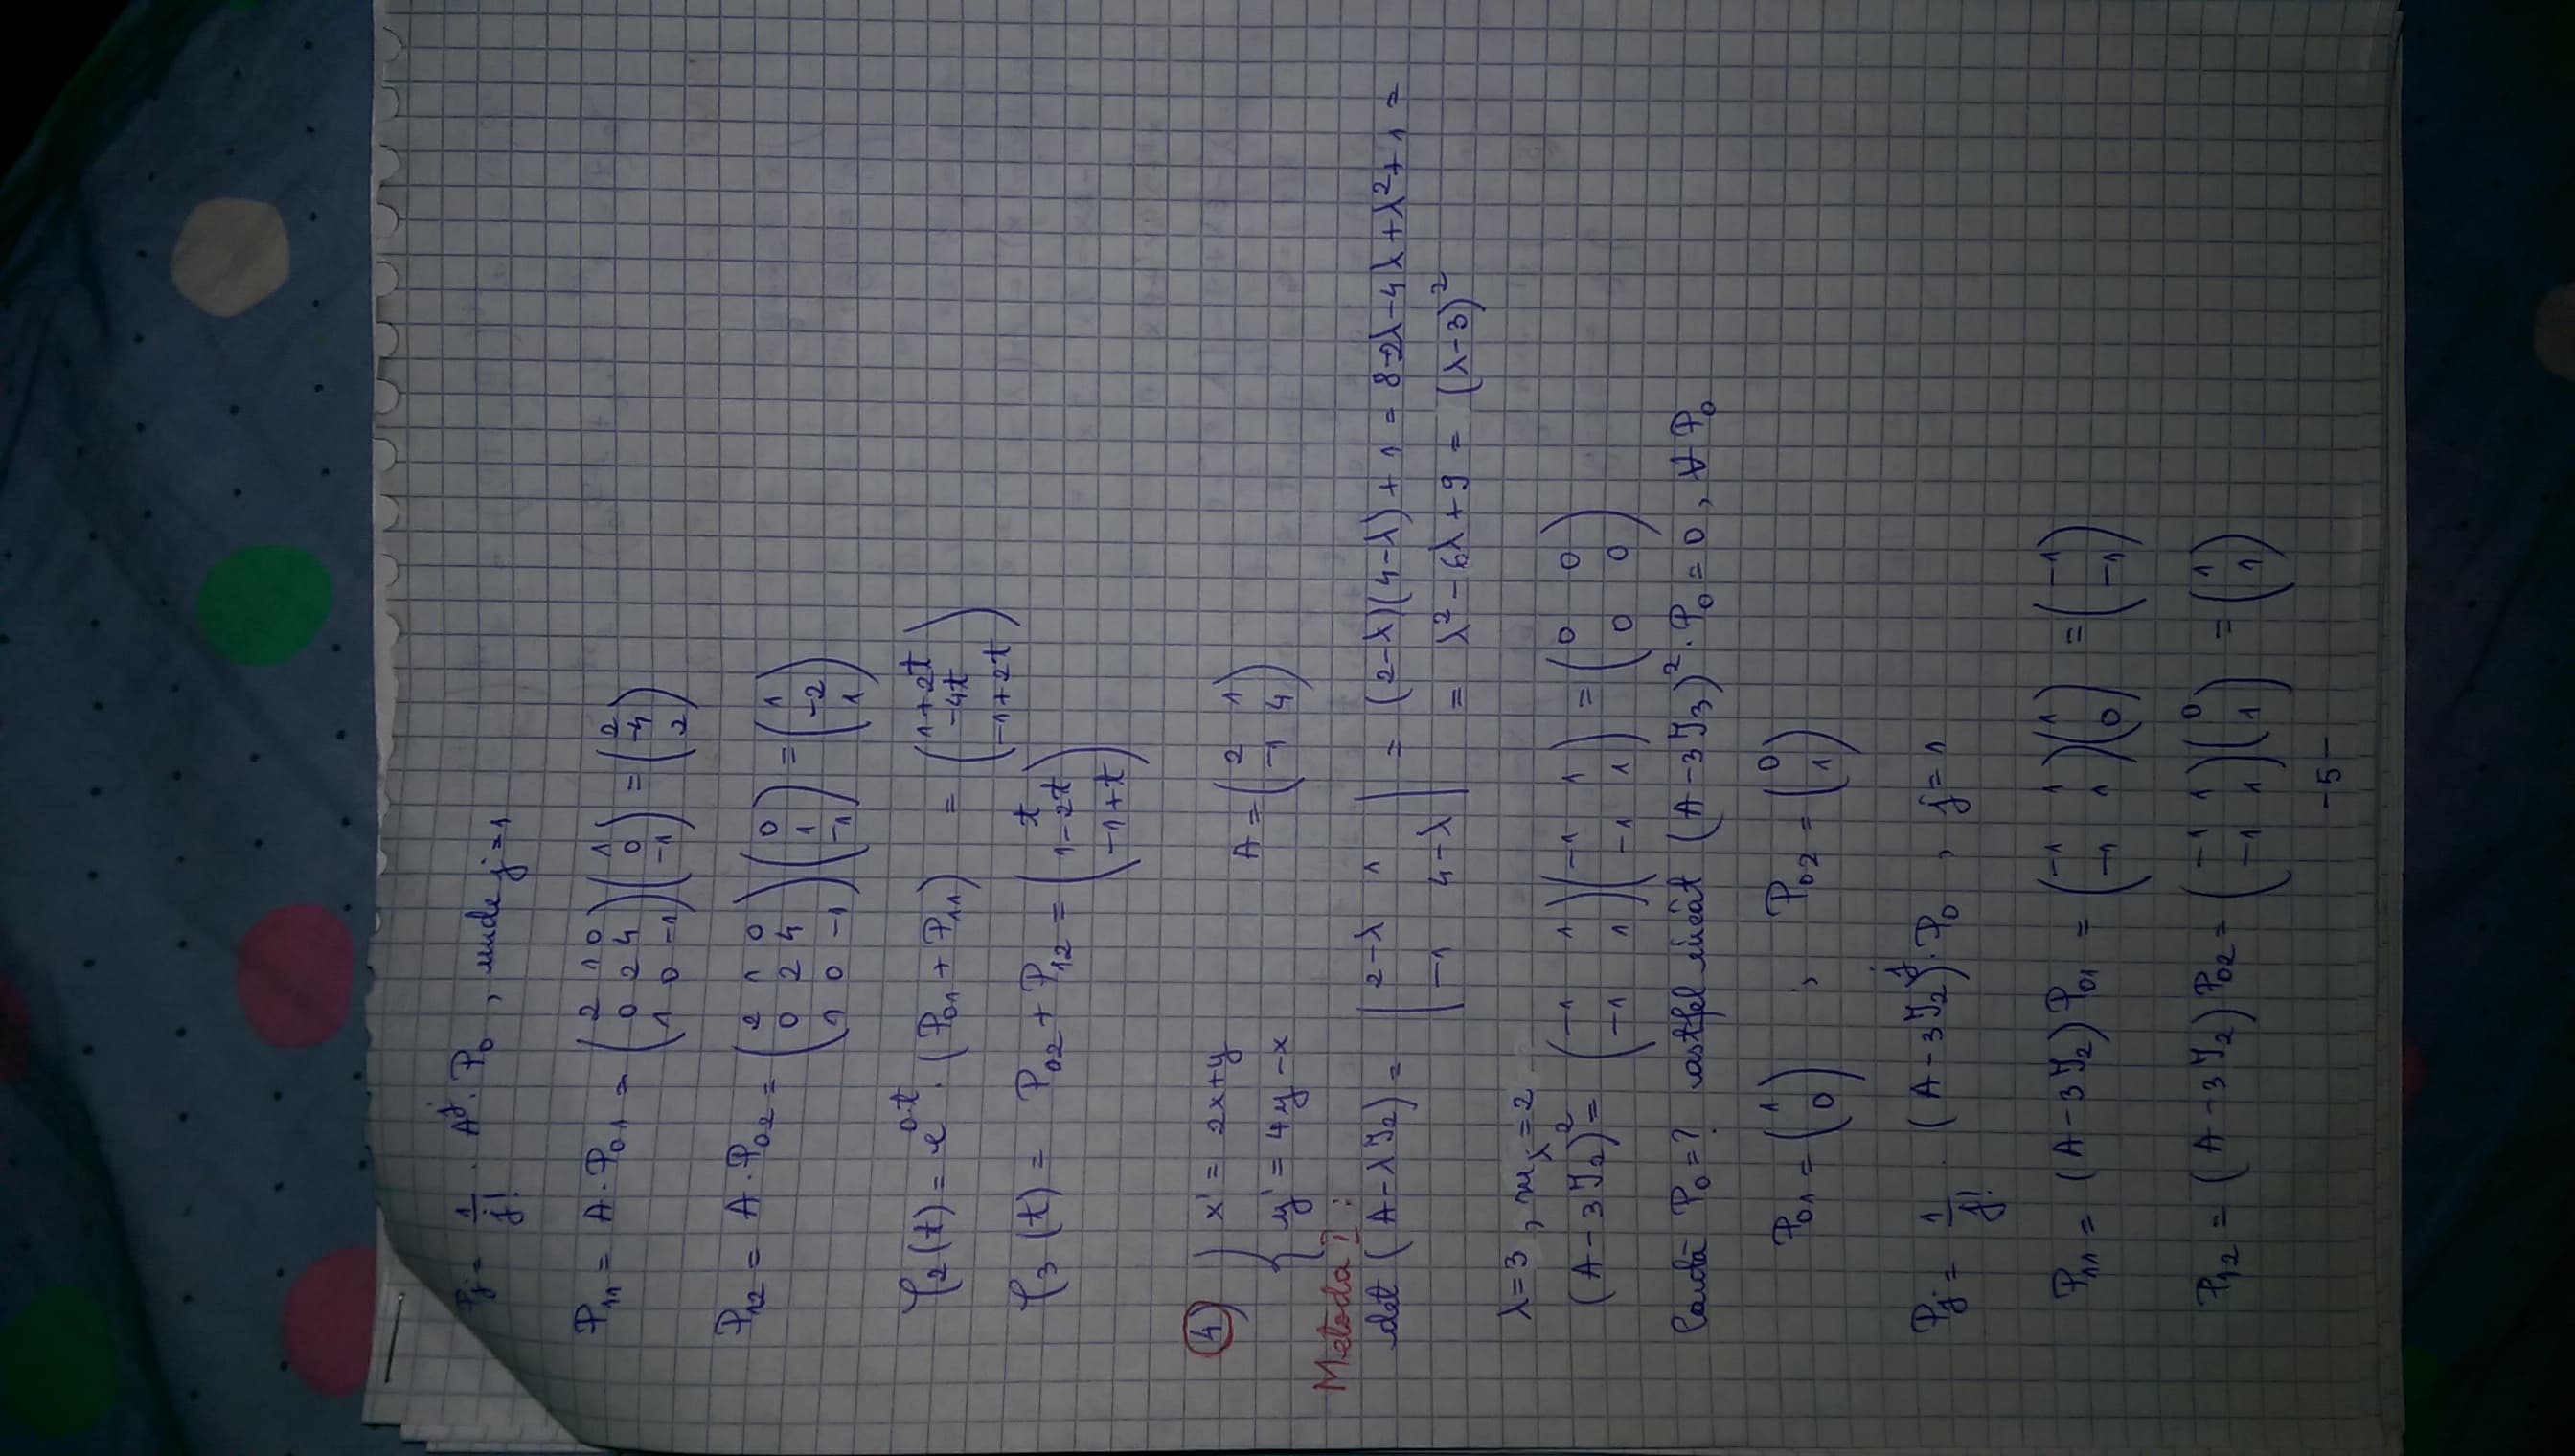 Pj = 1/j! · A^j · P₀ , unde j=1
P₁₁ = A·P₀₁ = (2 1 0; 0 2 4; 1 0 -1)(1; 0; -1) = (2; -4; 2)
P₁₂ = A·P₀₂ = (2 1 0; 0 2 4; 1 0 -1)(0; 1; -1) = (1; -2; 1)
φ₂(t) = e^(0·t) · (P₀₁ + P₁₁) = (1+2t; -4t; -1+2t)
φ₃(t) = P₀₂ + P₁₂ = (t; 1-2t; -1+t)
4) { x' = 2x+y A = (2 1; -1 4)
y' = 4y-x
Metoda I :
det (A-λI₂) = |2-λ 1; -1 4-λ| = (2-λ)(4-λ)+1 = 8-2λ-4λ+λ²+1 =
= λ²-6λ+9 = (λ-3)²
λ=3 , m_λ=2
(A-3I₂)² = (-1 1; -1 1)(-1 1; -1 1) = (0 0; 0 0)
Caută P₀=? astfel încât (A-3I₃)²·P₀ = 0, ∀ P₀
P₀₁ = (1; 0) ; P₀₂ = (0; 1)
Pj = 1/j! · (A-3I₂)^j·P₀ , j=1
P₁₁ = (A-3I₂) P₀₁ = (-1 1; -1 1)(1; 0) = (-1; -1)
P₁₂ = (A-3I₂) P₀₂ = (-1 1; -1 1)(0; 1) = (1; 1)
-5-